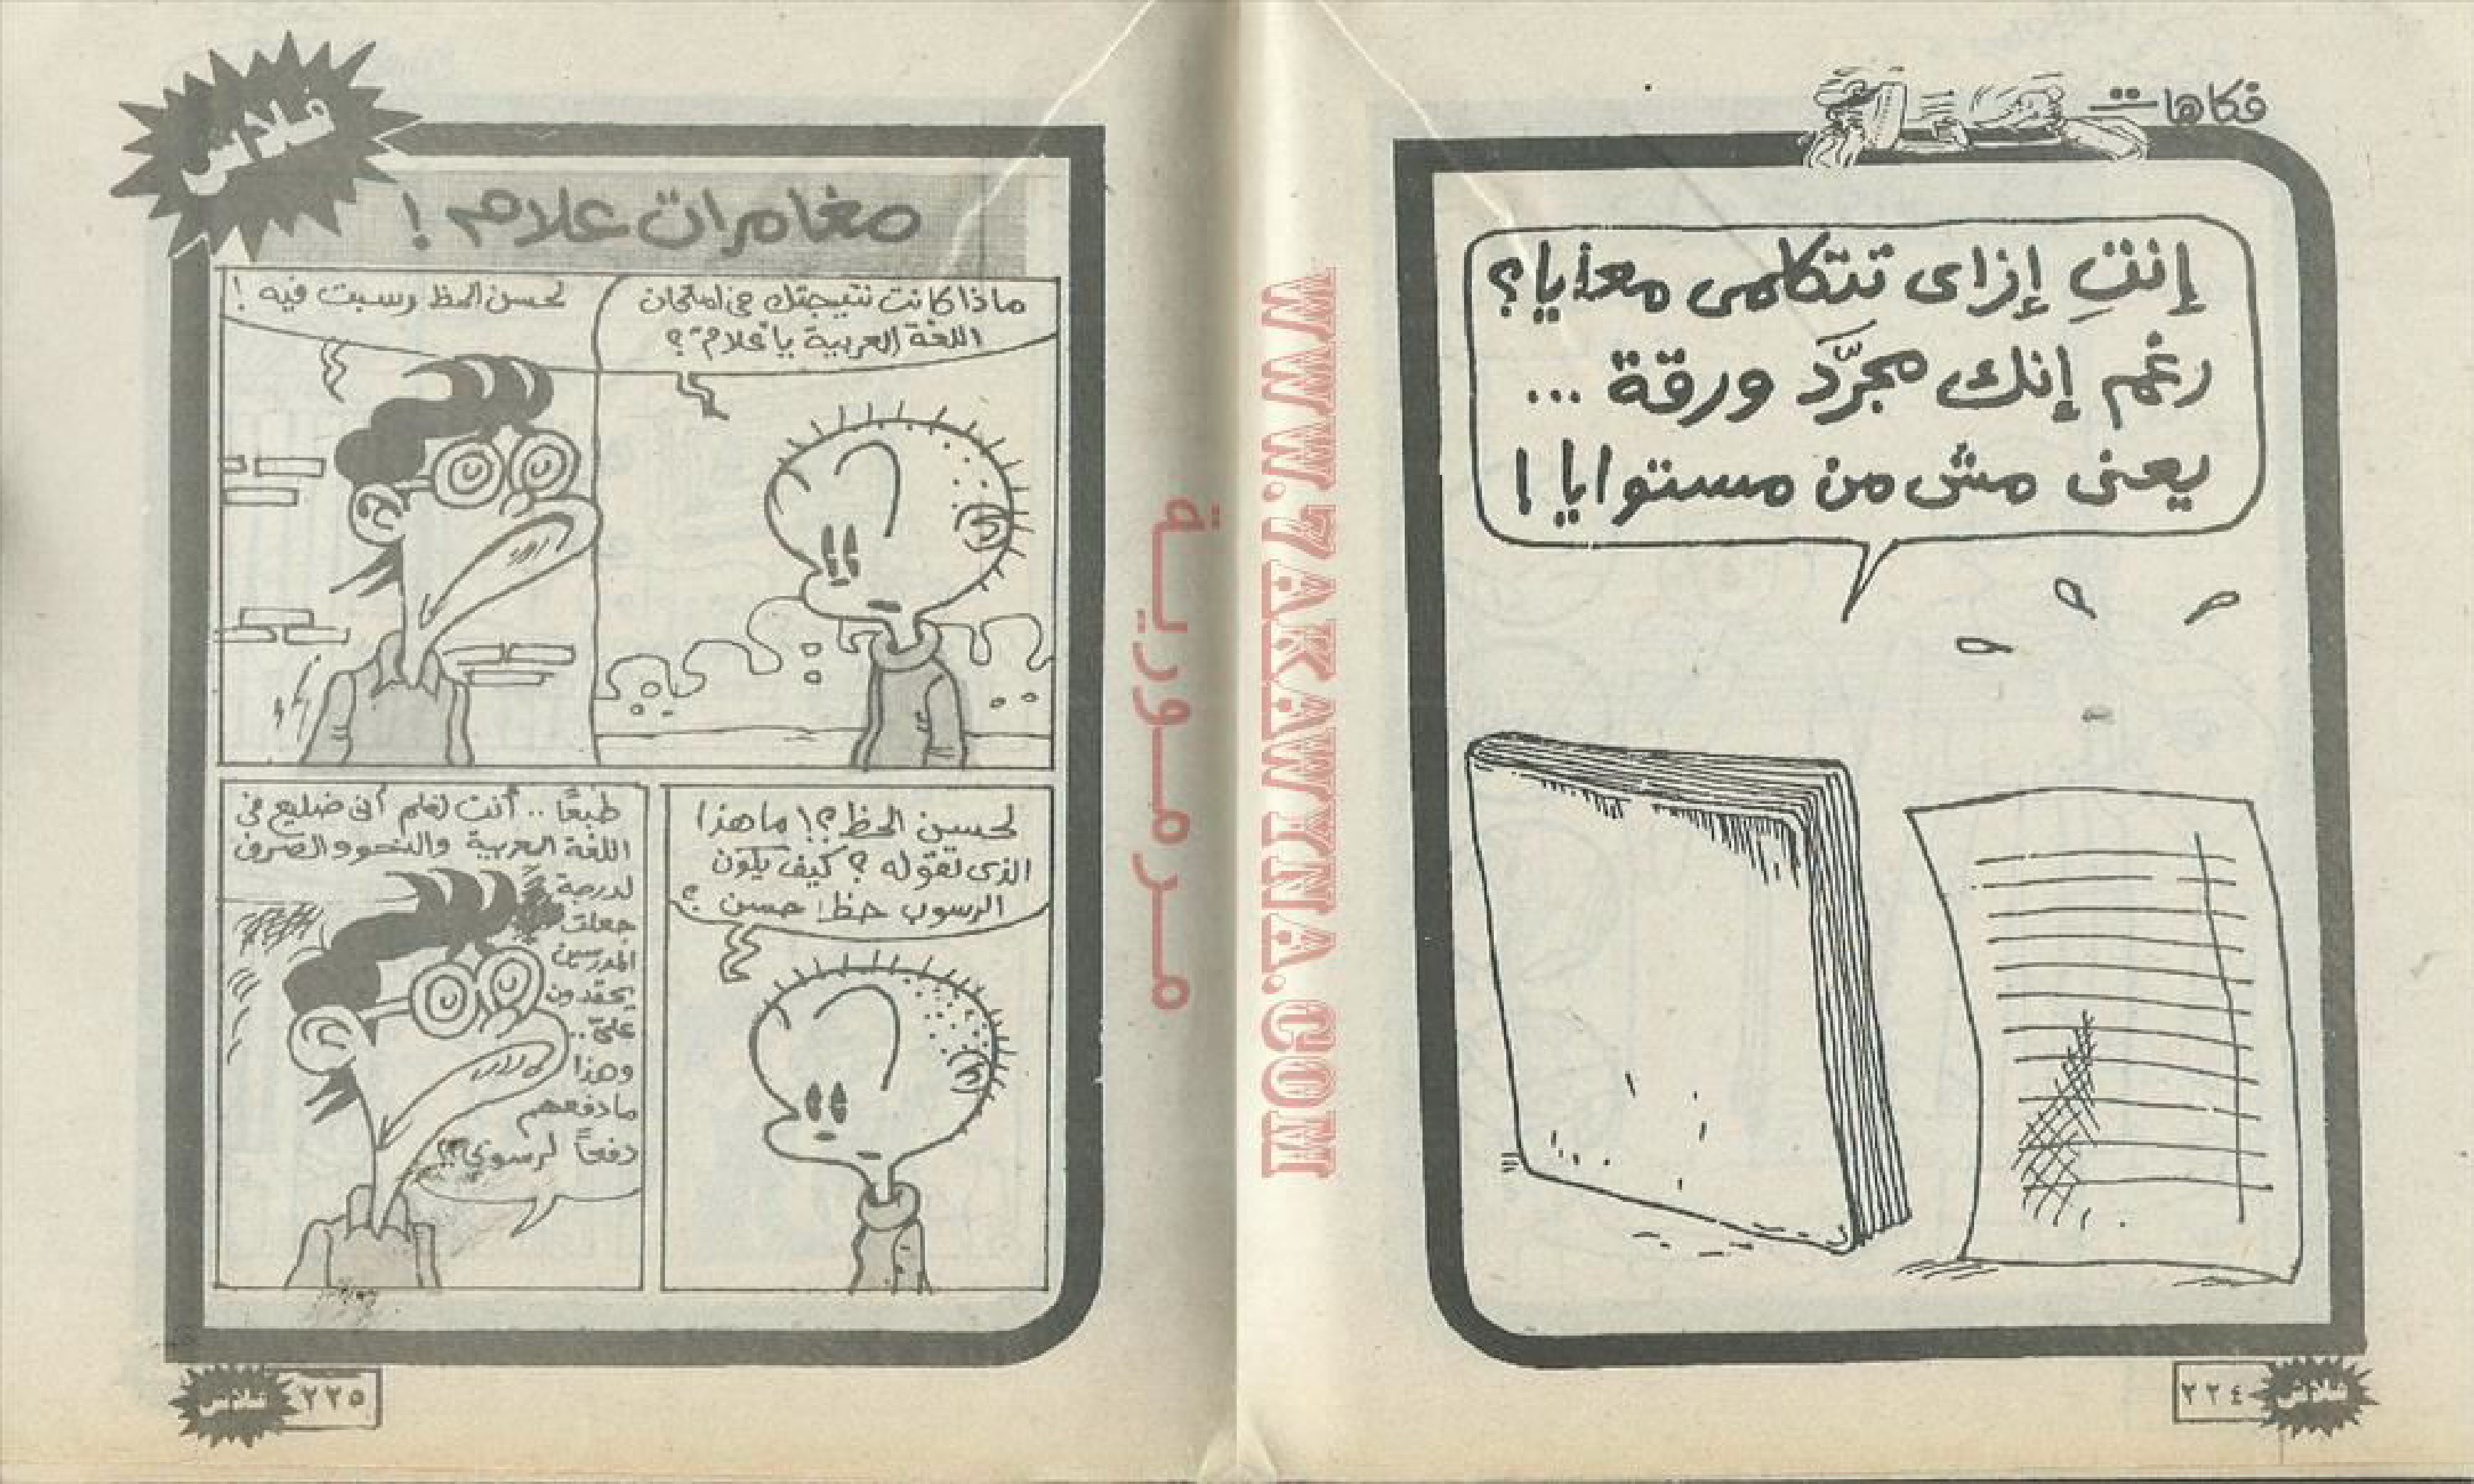 فكاهات
إنتِ إزاى تتكلمى معايا؟
رغم إنك مجرَّد ورقة ...
يعنى مش من مستوايا !
٢٢٤
فلاش
WWW.ZAKAWITNA.COM
مرمورية
فلاش
مغامرات علام !
ماذا كانت نتيجتك فى امتحان
اللغة العربية يا علام ؟
لحسن الحظ رسبت فيه !
لحسن الحظ ؟! ما هذا
الذى تقوله ؟ كيف يكون
الرسوب حظا حسن ؟
طبعًا .. أنت تعلم أنى ضليع فى
اللغة العربية والنحو والصرف
لدرجة
جعلت
المدرسين
يحقدون
علىّ ..
وهذا
ما دفعهم
دفعًا لرسوبى !!
٢٢٥
فلاش